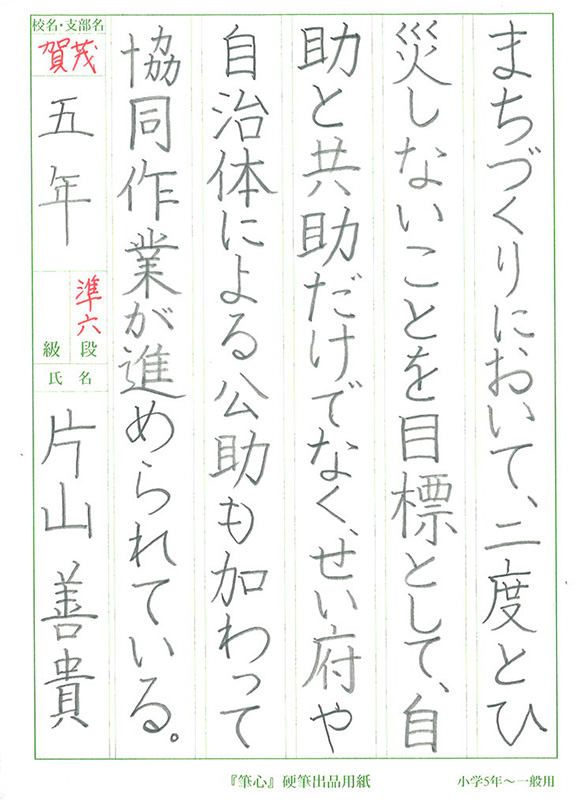 まちづくりにおいて、二度とひ
災しないことを目標として、自
助と共助だけでなく、せい府や
自治体による公助も加わって
協同作業が進められている。
校名・支部名
賀茂
五年
準六
級 段
氏 名
片山善貴
『筆心』硬筆出品用紙
小学5年〜一般用